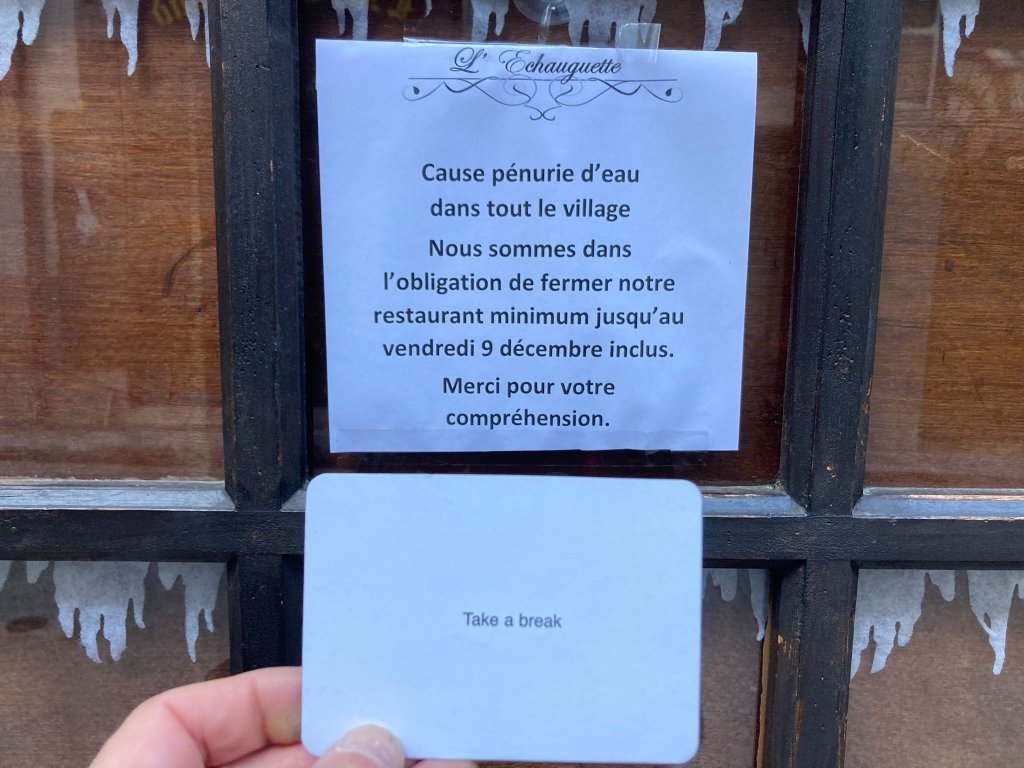 L' Echauguette
Cause pénurie d'eau
dans tout le village
Nous sommes dans
l'obligation de fermer notre
restaurant minimum jusqu'au
vendredi 9 décembre inclus.
Merci pour votre
compréhension.
Take a break